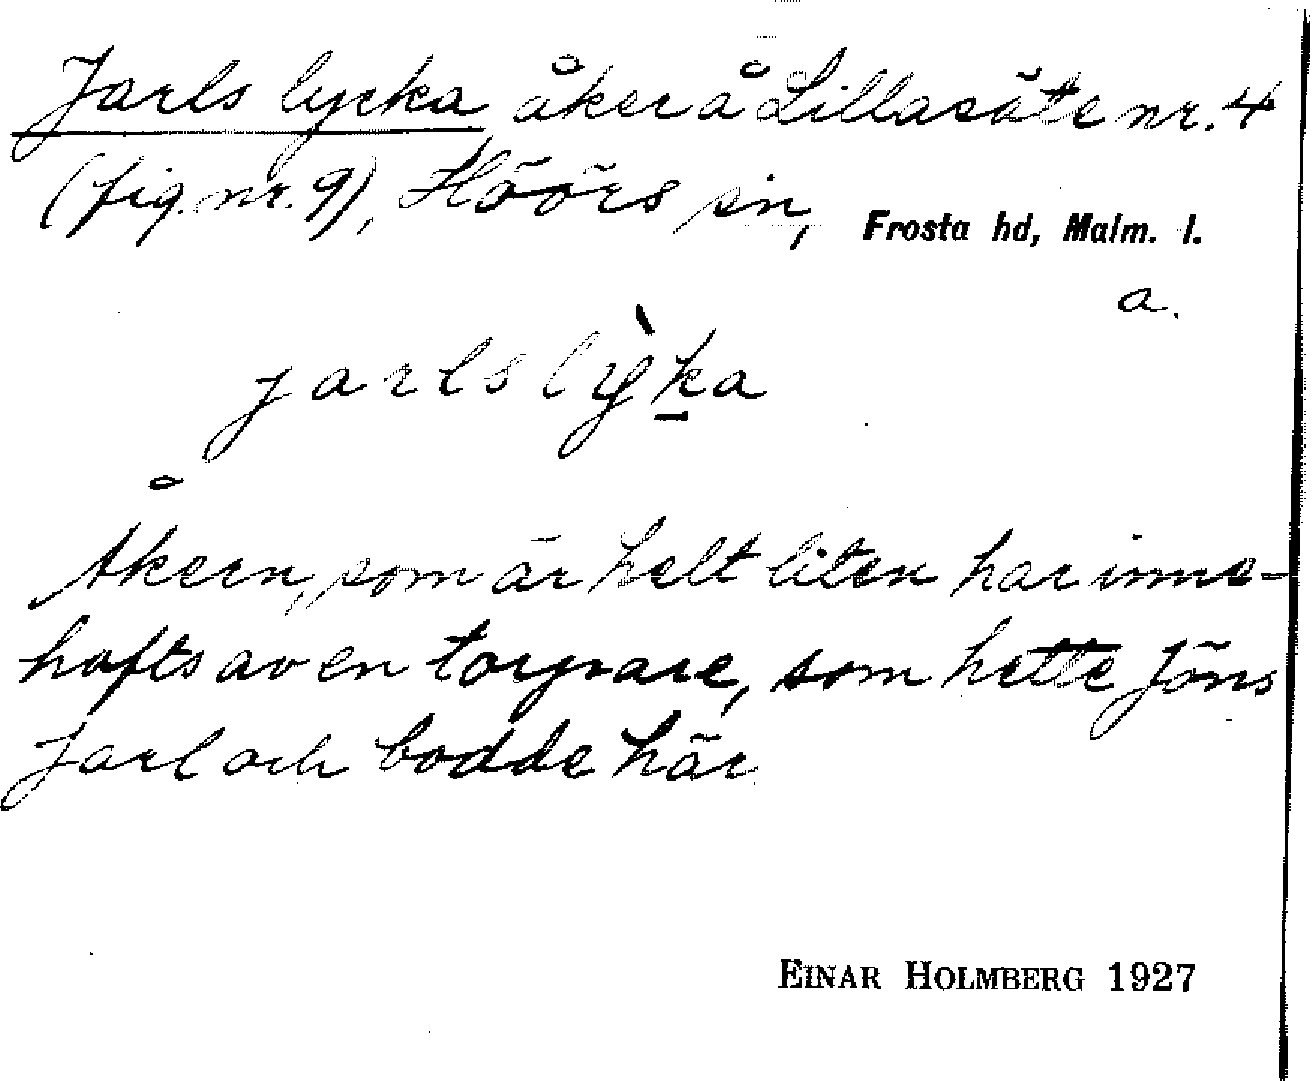 Jarls lycka, åker å Lillasäte nr. 4
(fig. nr. 9), Höörs sn, Frosta hd, Malm. l.
a.
jarlslỳk̲a
Åkern, som är helt liten har inne-
hafts av en torpare, som hette Jöns
Jarl och bodde här.
EINAR HOLMBERG 1927